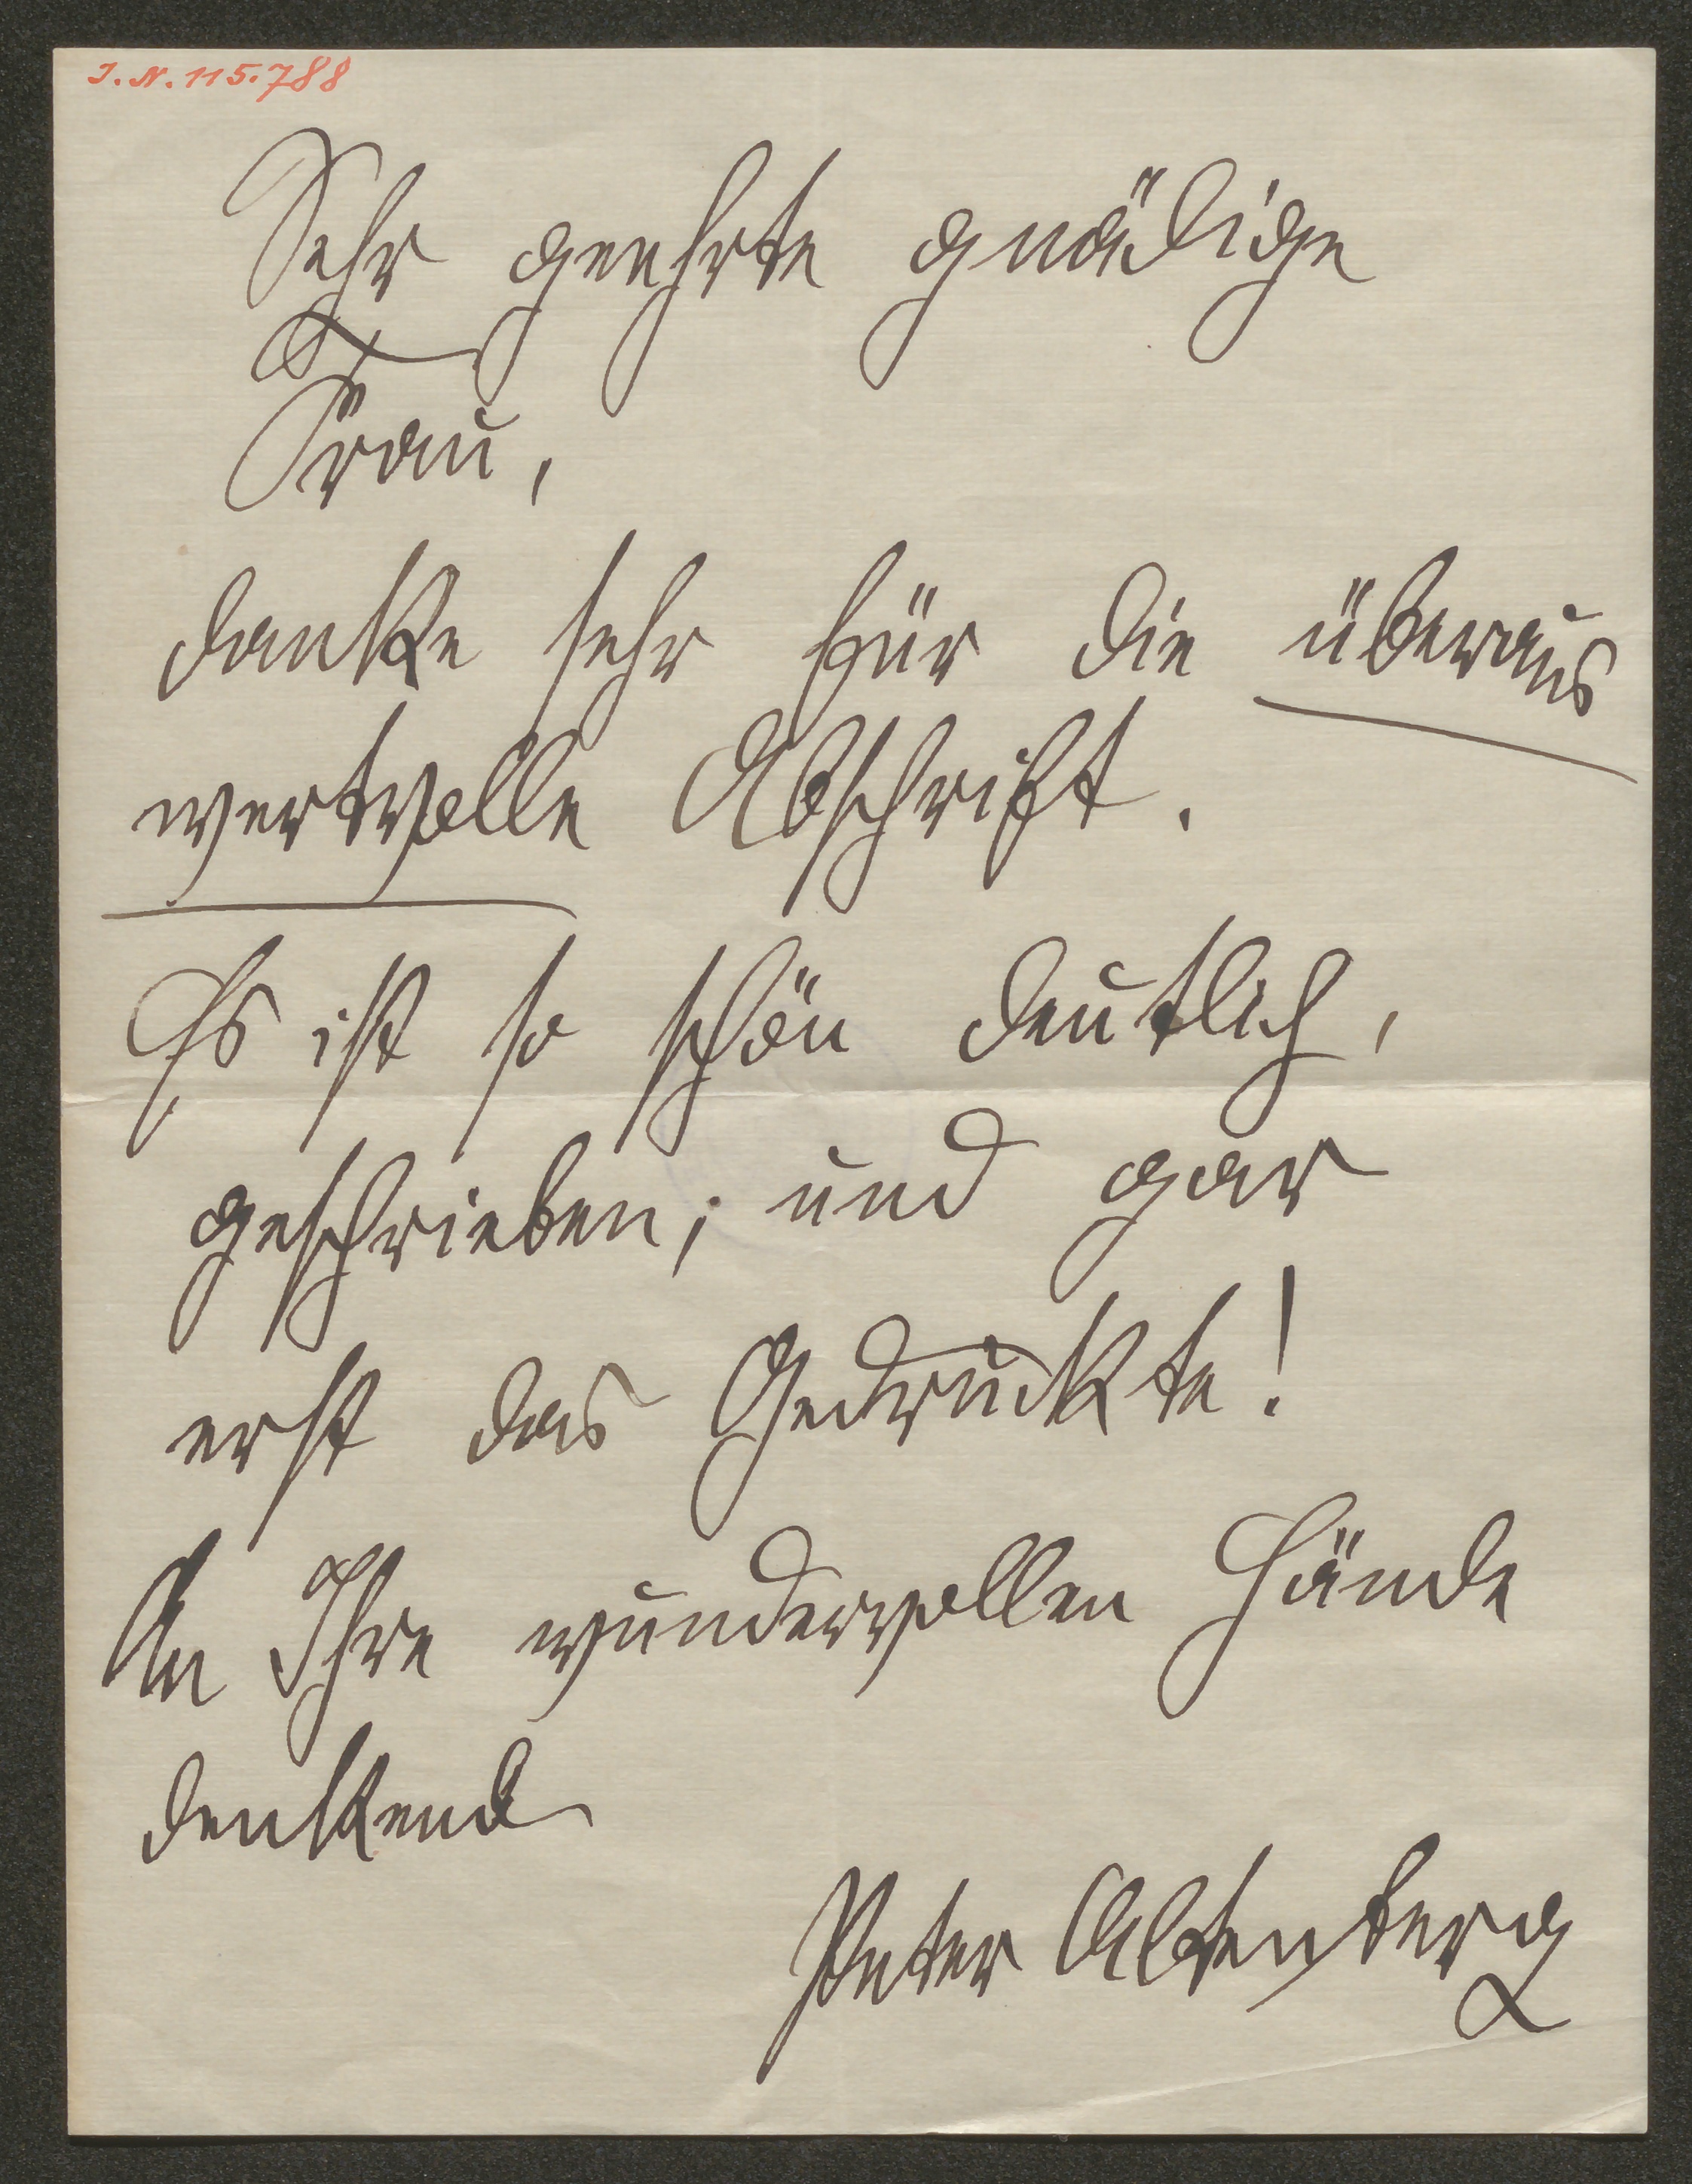 I. N. 115.788
Sehr geehrte gnädige
Frau,
danke sehr für die überaus
wertvolle Abschrift.
Es ist so schön deutlich,
geschrieben; und gar
erst das Gedruckte!
An Ihre wundervollen Hände
denkend
Peter Altenberg